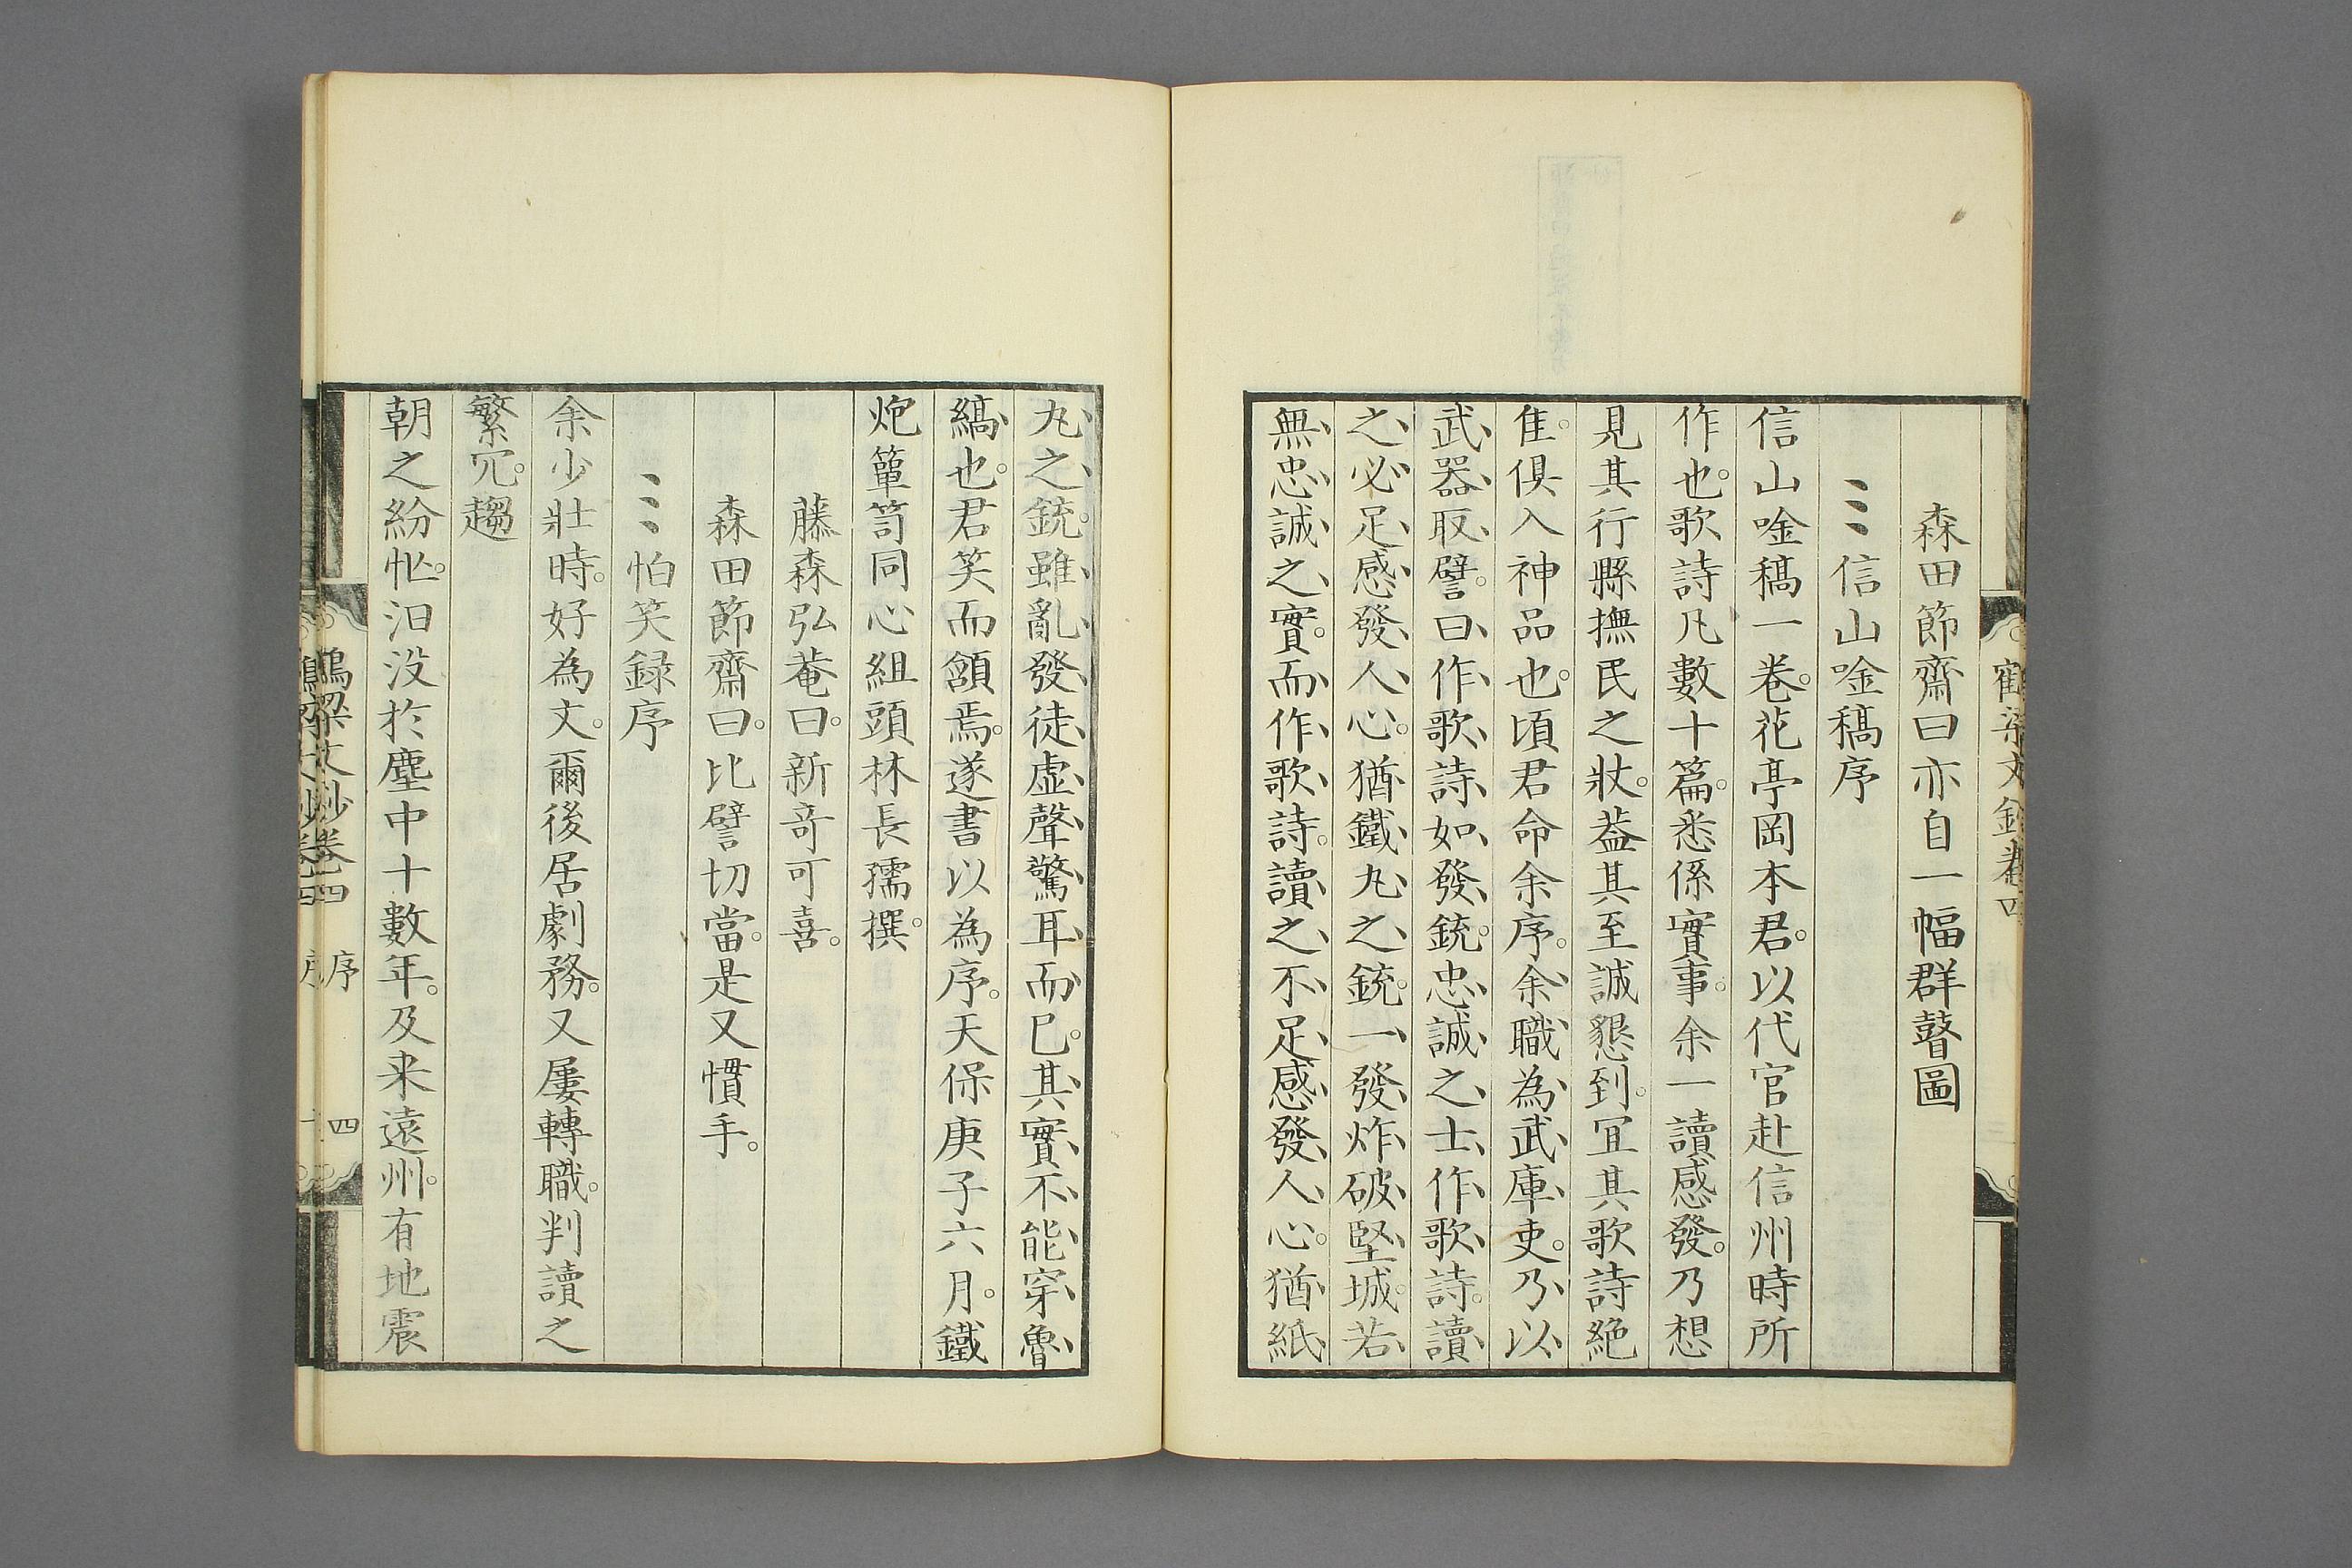 森田節齋曰亦自一幅群瞽圖
信山唫稿序
信山唫稿一卷。花亭岡本君。以代官赴信州時所
作也。歌詩凡數十篇。悉係實事。余一讀感發。乃想
見其行縣撫民之狀。葢其至誠懇到。冝其歌詩絶
隹。俱入神品也。頃君命余序。余職為武庫吏。乃以
武器取譬。曰作歌詩如發銃。忠誠之士作歌詩。讀
之必足感發人心。猶鐵丸之銃。一發炸破堅城。若
無忠誠之實。而作歌詩。讀之不足感發人心。猶紙
丸之銃。雖亂發徒虚聲驚耳而已。其實不能穿魯
縞也。君笑而頷焉。遂書以為序。天保庚子六月。鐵
炮簞笥同心組頭林長孺撰。
藤森弘菴曰。新竒可喜。
森田節齋曰。比譬切當。是又慣手。
怕笑録序
余少壯時。好為文。爾後居劇務。又屢轉職。判讀之
繁冗。趨
朝之紛忙。汩没於塵中十數年。及来遠州。有地震
鶴梁文鈔卷四
鶴梁文鈔卷四 序 四